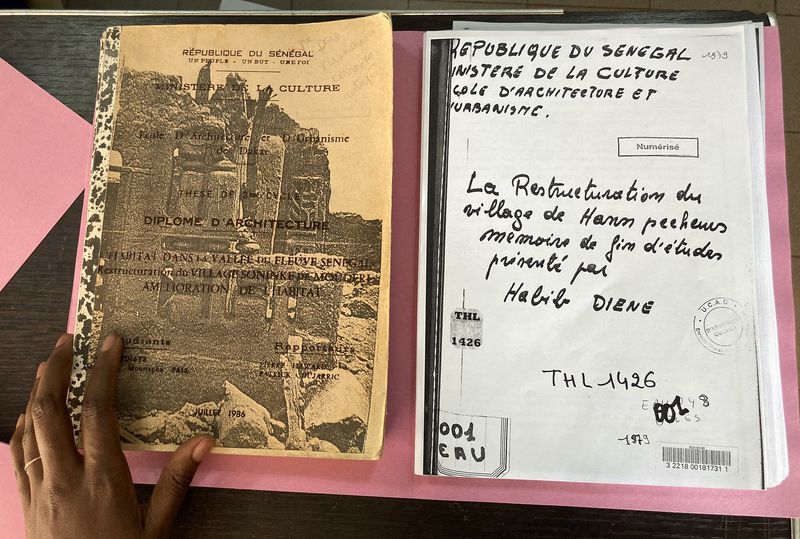 RÉPUBLIQUE DU SÉNÉGAL
UN PEUPLE - UN BUT - UNE FOI
MINISTERE DE LA CULTURE
Ecole D'Architecture et D'Urbanisme
de Dakar
THESE DE 3eme CYCLE
DIPLOME D'ARCHITECTURE
HABITAT DANS LA VALLEE DU FLEUVE SENEGAL
Restructuration du VILLAGE SONINKE DE MOUDERI
AMELIORATION DE L'HABITAT
Rapporteurs
Moustapha
PATRICK DUJARRIC
JUILLET 1986
REPUBLIQUE DU SENEGAL
1979
INISTERE DE LA CULTURE
COLE D'ARCHITECTURE ET
'URBANISME.
Numérisé
La Restructuration du
village de Hann pecheurs
mémoire de fin d'études
présenté par
Habib DIENE
THL
1426
U.C.A.D.
THL 1426
001
1979
001
EAU
3 2218 00181731 1